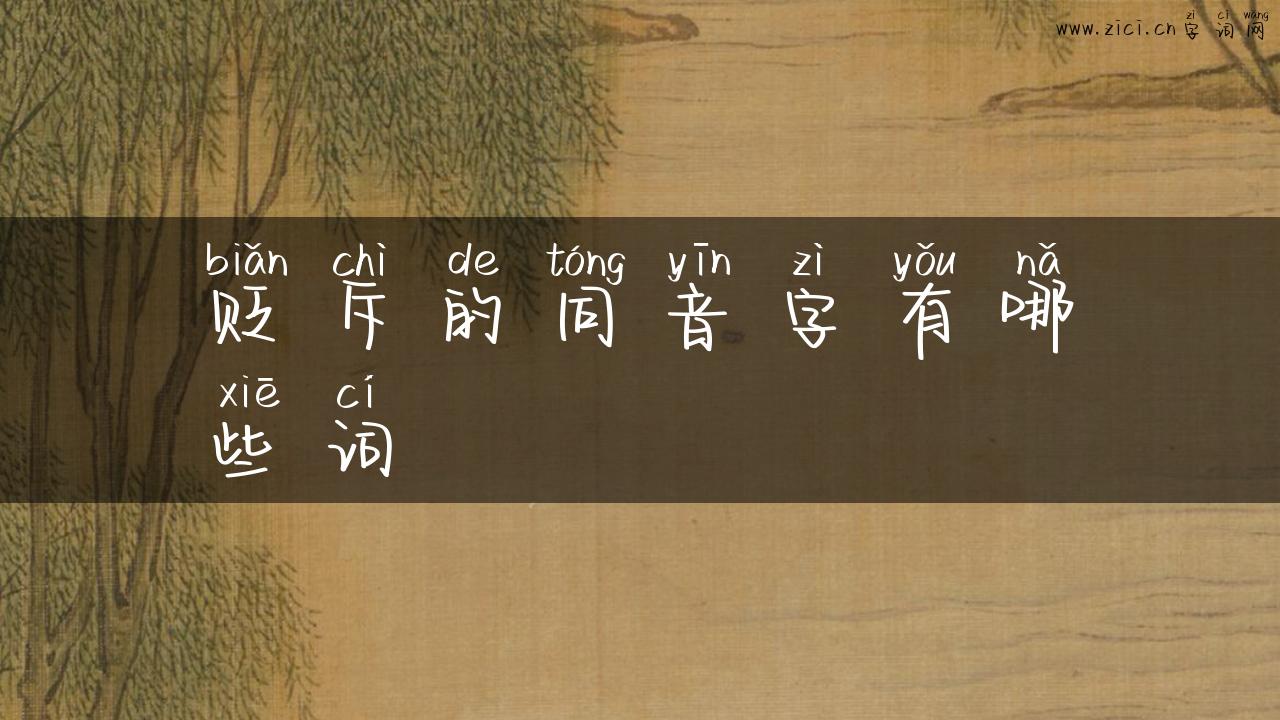 zì cí wǎng
www.zici.cn字词网
biǎn chì de tóng yīn zì yǒu nǎ
贬斥的同音字有哪
xiē cí
些词